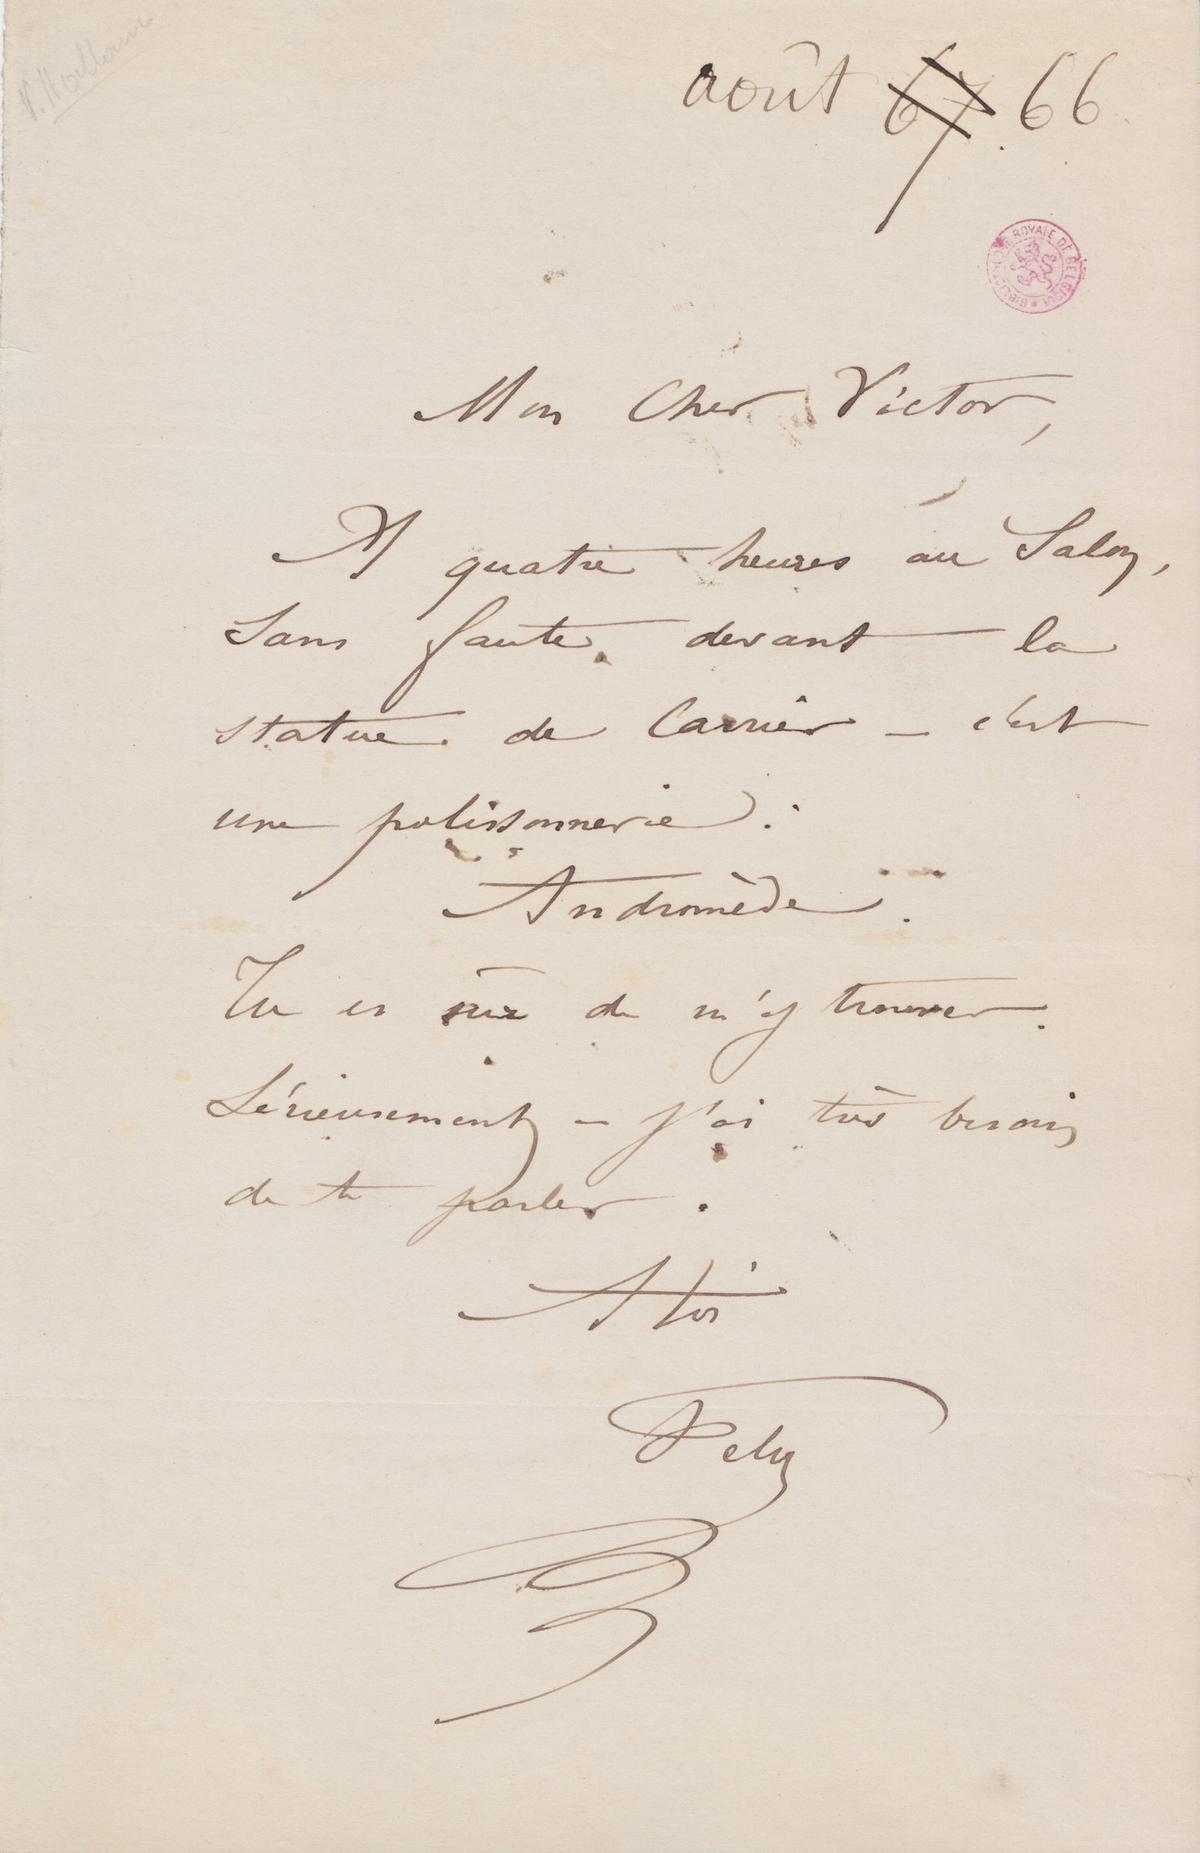 V. Hallaux
août 67 66
BIBLIOTHÈQUE ROYALE DE BELGIQUE
Mon Cher Victor,
A quatre heures au Salon,
sans faute, devant la
statue de Carrier – c'est
une polissonnerie :
Andromède.
Tu es sûr de m'y trouver.
Sérieusement – j'ai très besoin
de te parler.
A toi
Fély